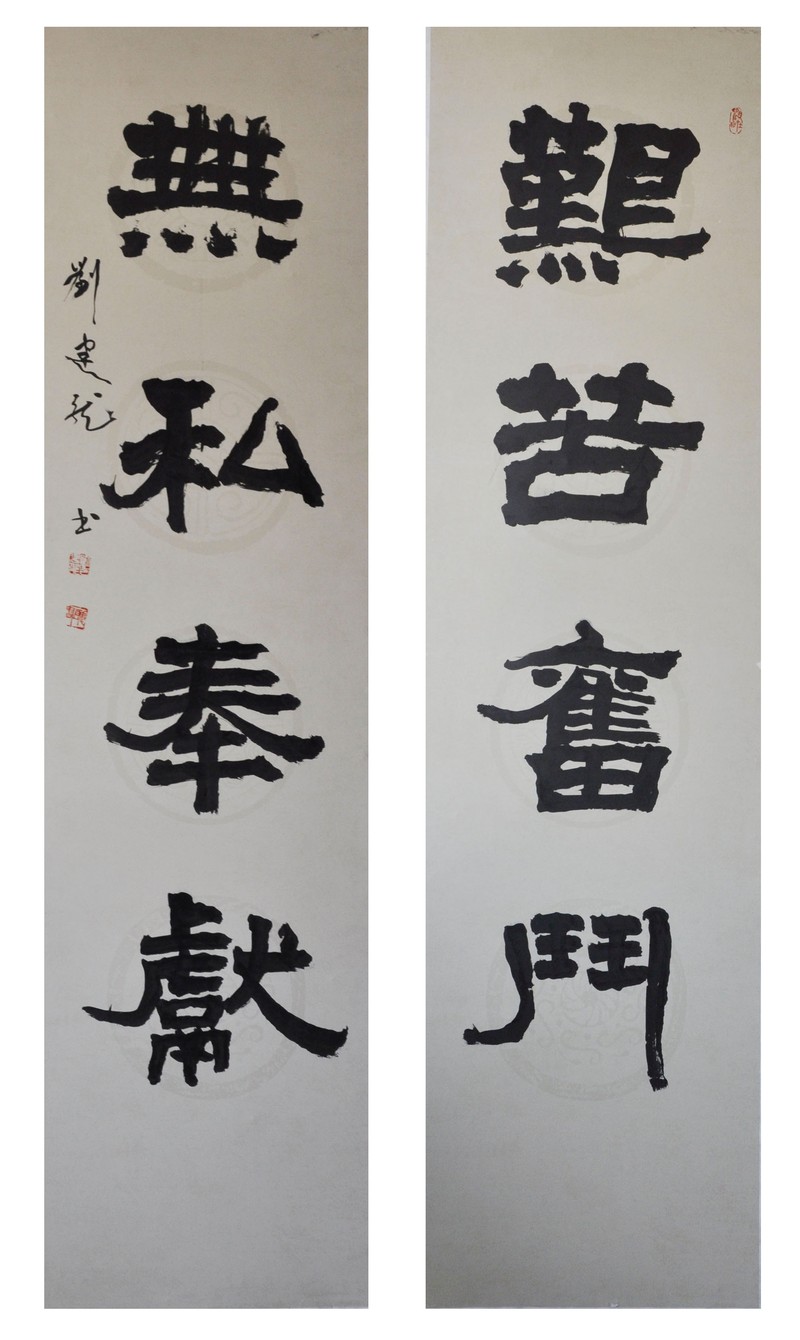 艱苦奮鬥
無私奉獻
劉建龍 书